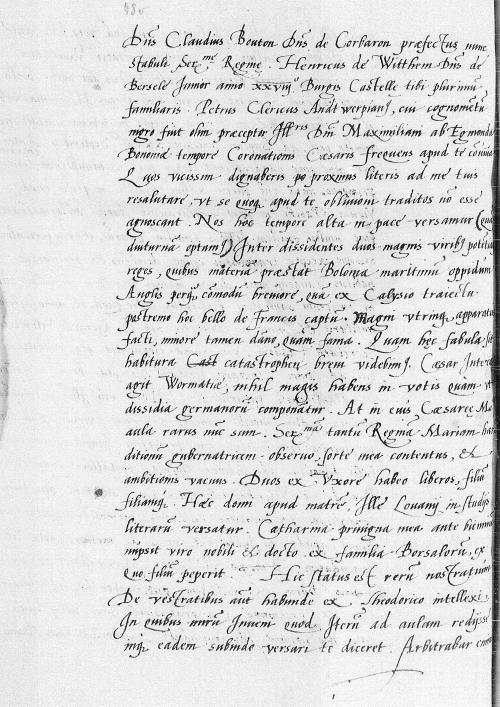 Dns Claudius Bouton Dns de Corbaron præfectus nunc
stabuli Ser.me Reginæ. Henricus de Witthem Dns de
Bersele Junior anno xxviij° Burgis Castellæ tibi plurimū
familiaris Petrus Clericus Andtwerpianꝰ, cui cognomētū
nigro fuit olim præceptor Ill.ris Dni Maximiliani ab Egmonda
Bononiæ tempore Coronationis Cæsaris frequens apud te conuiua
Quos vicissim dignaberis po proximis literis ad me tuis
resalutare, vt se quoq. apud te obliuioni traditos nō esse
agnoscant. Nos hoc tempore alta in pace versamur (quā
diuturnā optamꝰ) Inter dissidentes duos magnis viribꝰ potētiſſ
reges, quibus materiā præstat Bolonia maritimū oppidum
Anglis perq. cōmodū breuiore, quā ex Calysio traiectu
postremo hoc bello de Francis captū. Magni vtrinq. apparatus
facti, minore tamen dāno, quam fama. Quam hec fabula sit
habitura Cast catastrophen breui videbimꝰ. Cæsar Interea
agit Wormatiæ, nihil magis habens in votis quam vt
dissidia germanorū componātur. At in eius Cæsareæ Ma
aula rarus nūc sum. Ser.mā tantū Reginā Mariam harū
ditionū gubernatricem obseruo, sorte mea contentus, et
ambitionis vacuus. Duos ex Vxore habeo liberos, filiū
filiamq. Hæc domi apud matrē. Ille Louanij in studijs
literarū versatur. Catharina priuigna mea ante bienniū
nupsit viro nobili et docto ex familia Borsalorū, ex
quo filiū peperit. Hic status est rerū nostrarum
De vestratibus aūt habunde ex Theodorico intellexi.
In quibus mirū Inueni quod Iterū ad aulam redijsse
inq. eadem subinde versari te diceret. Arbitrabar enim